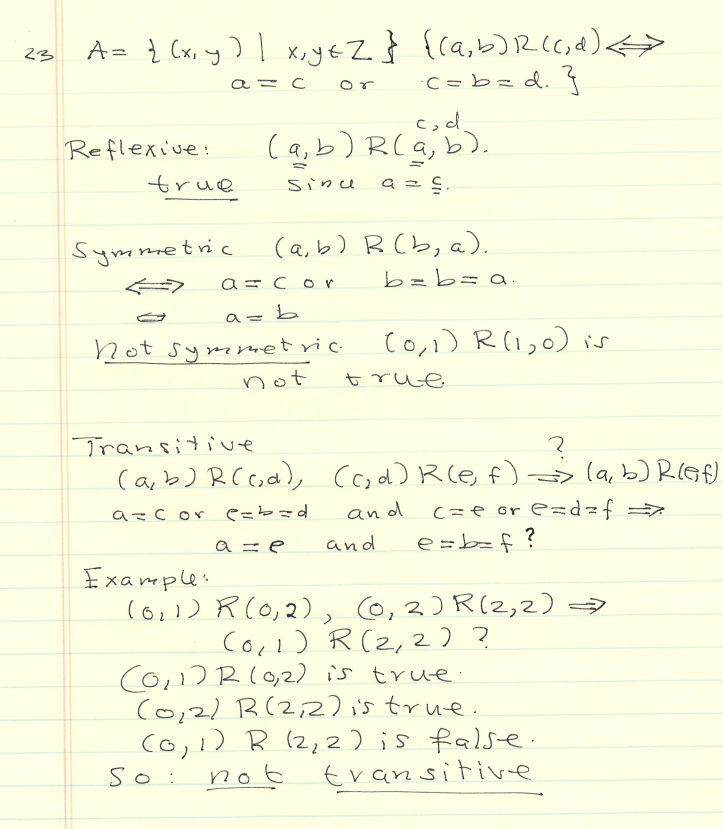 23 A = { (x, y) | x, y ∈ Z } {(a,b) R (c,d) ⟺
a = c or c = b = d. }
c, d
Reflexive: (a, b) R (a, b).
true since a = c.
Symmetric (a, b) R (b, a).
⟺ a = c or b = b = a.
⇔ a = b
not symmetric. (0,1) R (1,0) is
not true
Transitive ?
(a, b) R (c,d), (c, d) R (e, f) ⟹ (a, b) R (e,f)
a = c or c=b=d and c = e or e=d=f ⟹
a = e and e=b=f ?
Example:
(0,1) R (0,2), (0,2) R (2,2) ⟹
(0,1) R (2,2) ?
(0,1) R (0,2) is true.
(0,2) R (2,2) is true.
(0,1) R (2,2) is false.
So: not transitive